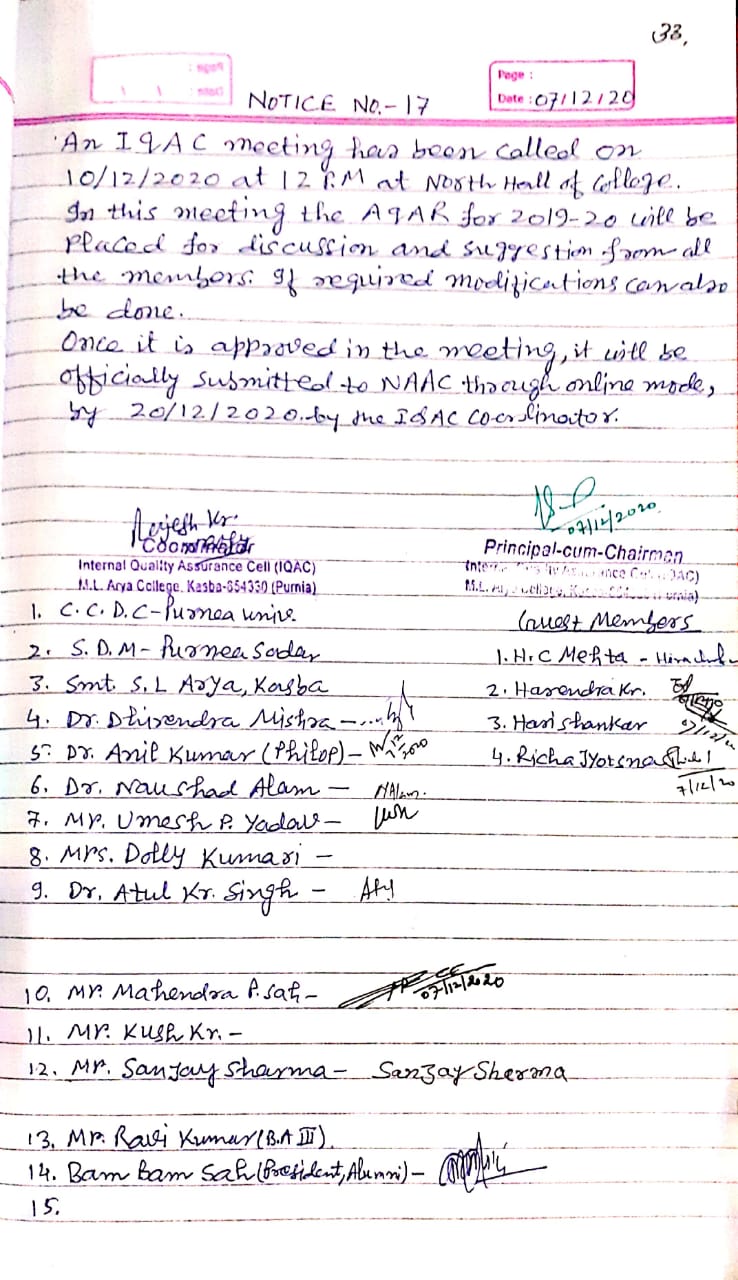 33.
Page :
Date : 07/12/20
NOTICE No.-17
An IQAC meeting has been called on
10/12/2020 at 12 P.M at North Hall of College.
In this meeting the AQAR for 2019-20 will be
placed for discussion and suggestion from all
the members. If required modifications can also
be done.
Once it is approved in the meeting, it will be
officially submitted to NAAC through online mode,
by 20/12/2020 by the IQAC Coordinator.
07/12/2020
Coordinator
Principal-cum-Chairman
Internal Quality Assurance Cell (IQAC)
M.L. Arya College, Kasba-854330 (Purnia)
1. C.C.D.C-Purnea Univ.
Guest Members
2. S.D.M- Purnea Sadar
1. H.C Mehta -
3. Smt. S.L Arya, Kasba
2. Harendra Kr.
4. Dr. Dhirendra Mishra -
3. Harishankar 07/12/2
5. Dr. Anil Kumar (Philop) -
4. Richa Jyotsna
7/12/20
6. Dr. Naushad Alam - NAlam.
7. Mr. Umesh P. Yadav -
8. Mrs. Dolly Kumari -
9. Dr. Atul Kr. Singh -
10. Mr. Mahendra P. Sah - 07/12/2020
11. Mr. Kush Kr. -
12. Mr. Sanjay Sharma - Sanjay Sharma
13. Mr. Ravi Kumar (B.A III)
14. Bam Bam Sah (President, Alumni) -
15.